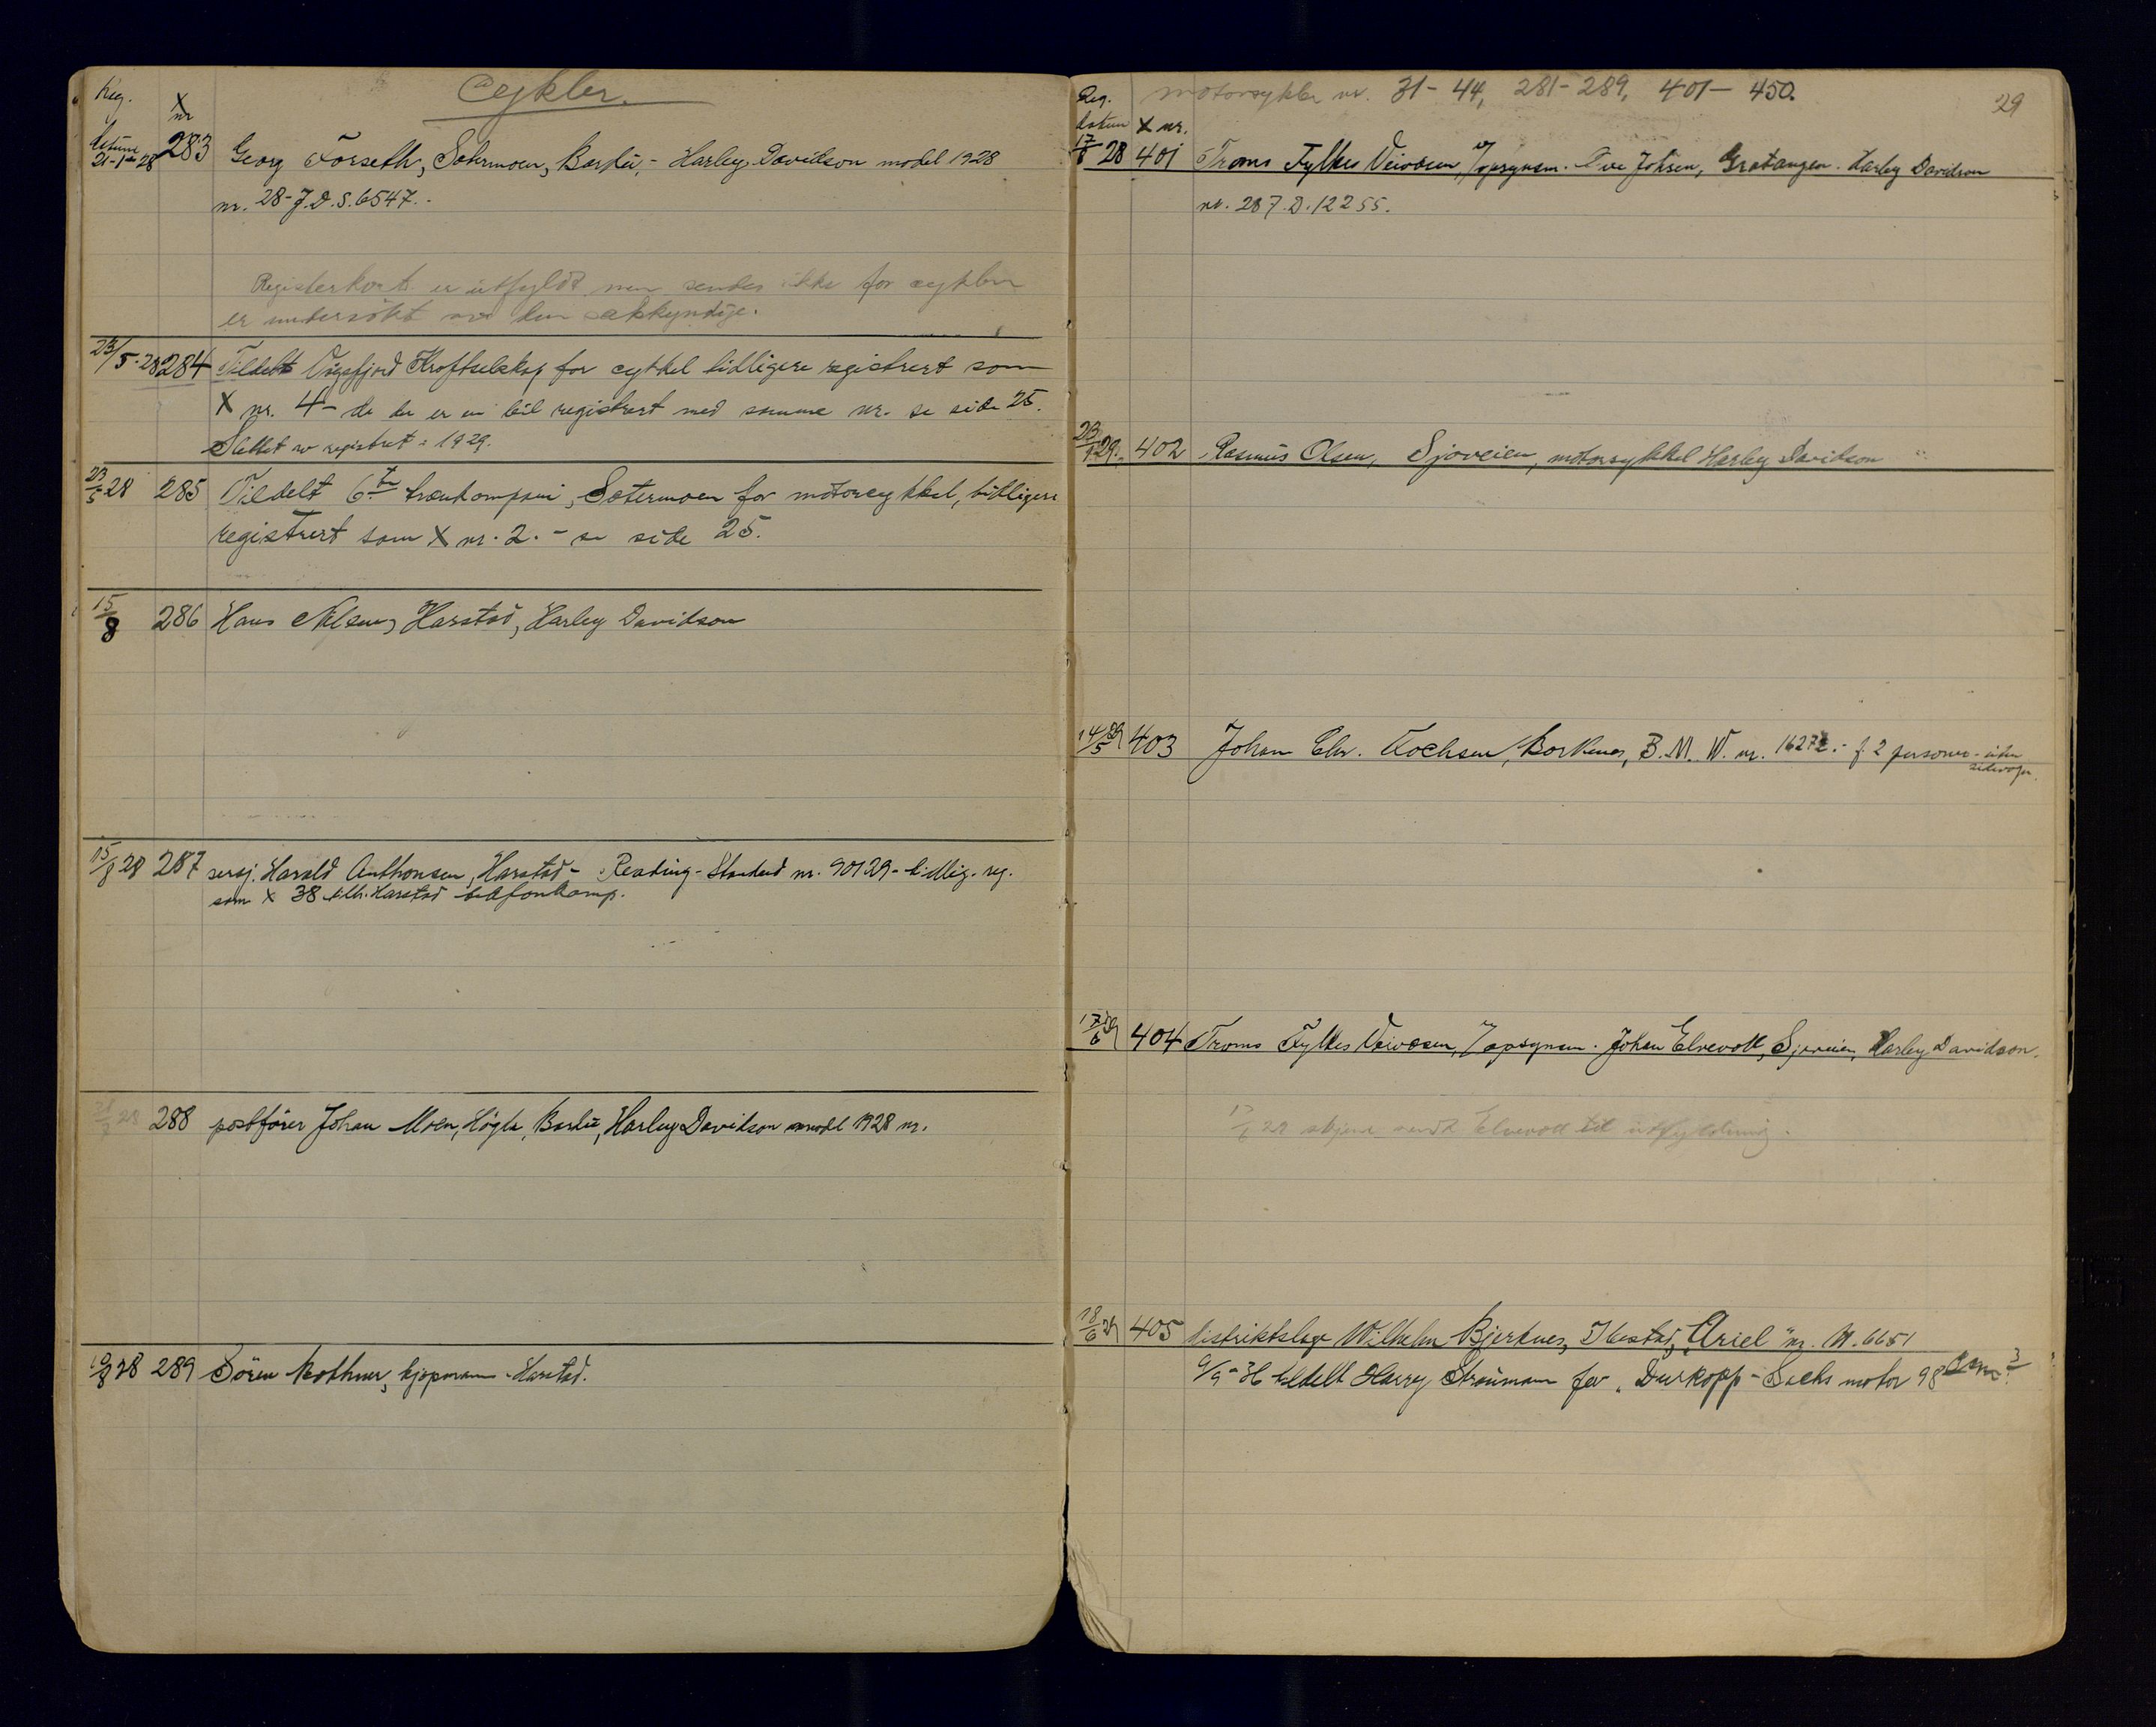 Cykler.
Reg. datum X nr
21-1-28 283 Georg Forseth, Setermoen, Bardu, - Harley-Davidson model 1928
nr. 28-J.D.S.6547.-
Registerkort er utfyldt men sendes ikke før cyklen
er undersökt av den sakkyndige.
23/5-28 284 Tildelt Vågsfjord Kraftselskap for cykkel tidligere registrert som
X nr. 4 - da der er en bil registrert med samme nr. se side 25.
Slettet av registret: 1929.
23/5 28 285 Tildelt 6te trænkompani, Setermoen for motorcykkel, tidligere
registrert som X nr. 2. - se side 25.
15/8 286 Hans Nilsen, Harstad, Harley Davidson
15/8 28 287 sersj. Harald Anthonsen, Harstad - Reading-Standard nr. 90129 - tidlig. reg.
som X 38 Harstad telefonkomp.
28 288 postförer Johan Moen, Högda, Bardu, Harley Davidson model 1928 nr.
10/8 28 289 Sören Kothner, kjøpmann - Harstad.
motorsykler nr. 31-44, 281-289, 401-450.
29
Reg. datum X nr.
17/8 28 401 Troms Fylkes Veivæsen, v/opsynsm. Johsen, Gratangen. Harley Davidson
nr. 287.D.12255.
402 Rasmus Olsen, Sjøveien, motorsykkel Harley Davidson
14/5 29 403 Johan Chr. Kochsen, Borkenes, B.M.W. nr. 16272.- f. 2 personer - uten
sidevogn.
17/6 29 404 Troms Fylkes Veivæsen, v/opsynsm. Johan Elvevoll, Sjøveien, Harley Davidson.
17/6 29 skjema sendt Elvevoll til utfyldning.
18/6 29 405 distriktslæge Wilhelm Bjerknes, Ibestad, "Ariel" nr. M.6651
9/9-36 tildelt Harry Straumann for "Durkopp-Sachs motor 98 cm3